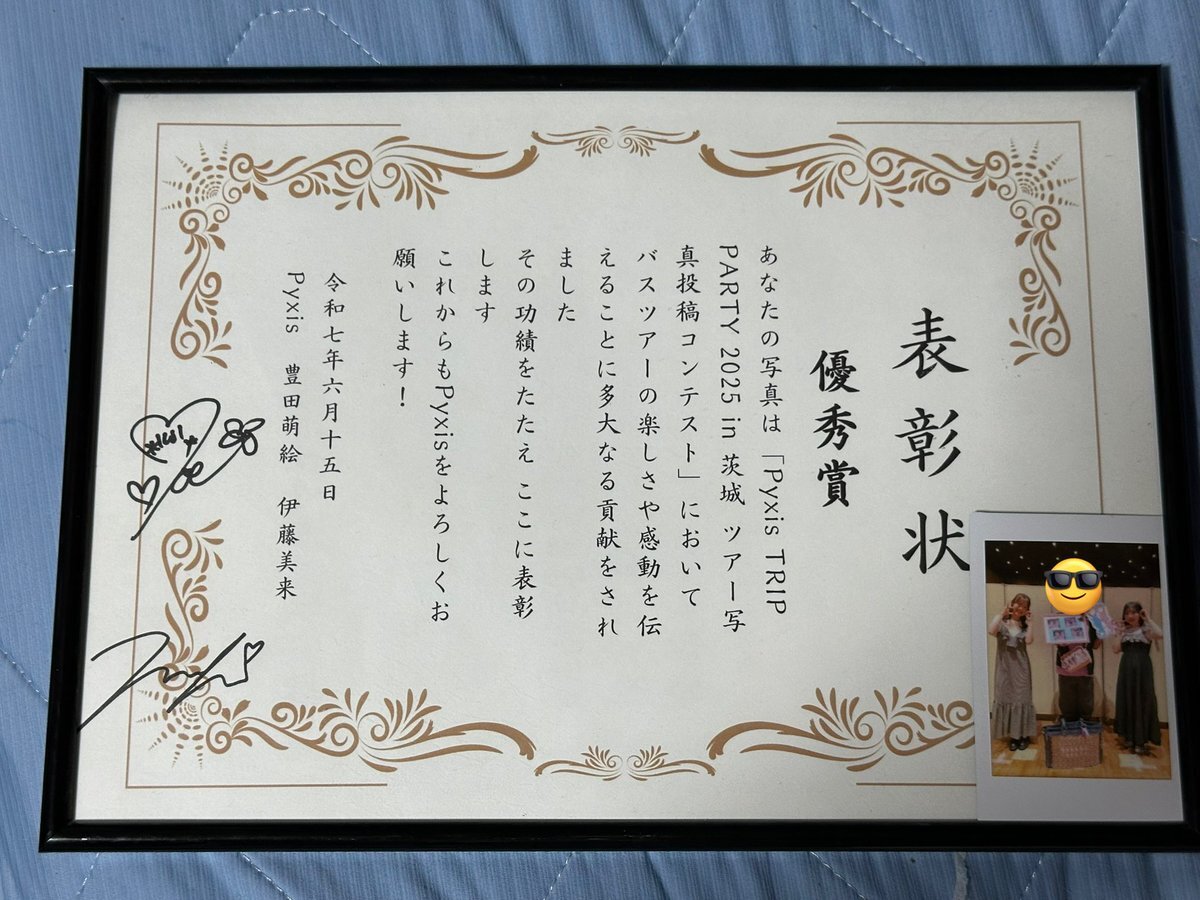 表彰状
優秀賞
あなたの写真は「Pyxis TRIP
PARTY 2025 in 茨城 ツアー写
真投稿コンテスト」において
バスツアーの楽しさや感動を伝
えることに多大なる貢献をされ
ました
その功績をたたえ ここに表彰
します
これからもPyxisをよろしくお
願いします！
令和七年六月十五日
Pyxis 豊田萌絵 伊藤美来